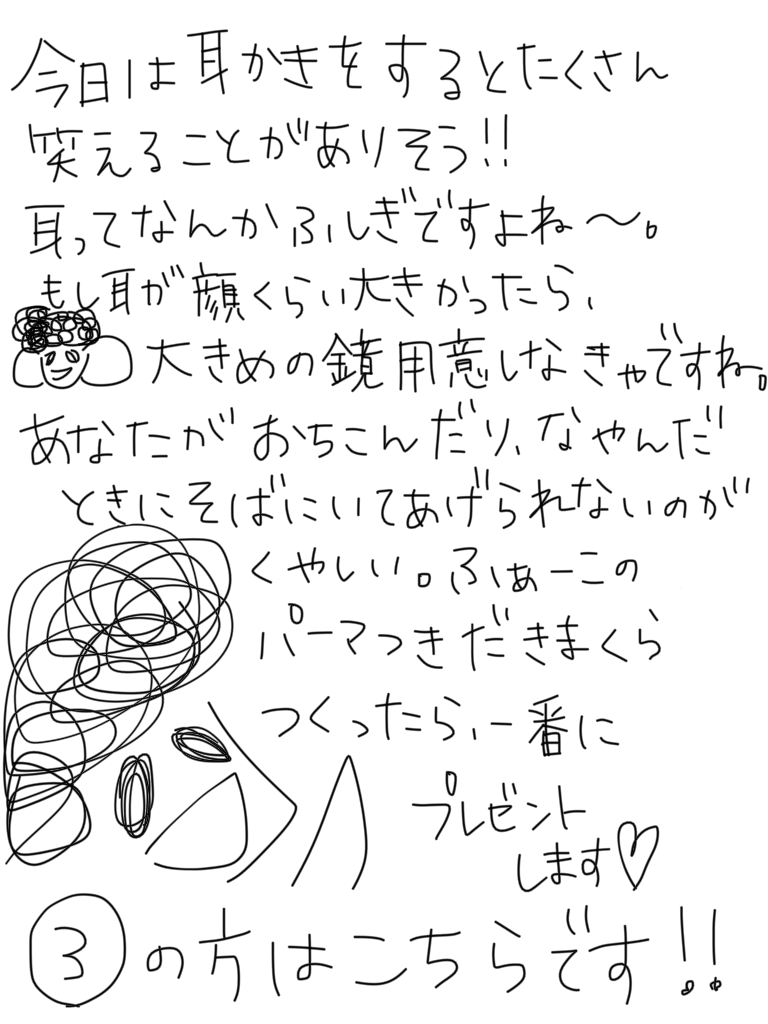 今日は耳かきをするとたくさん
笑えることがありそう!!
耳ってなんかふしぎですよね〜。
もし耳が顔くらい大きかったら、
大きめの鏡用意しなきゃですね。
あなたがおちこんだり、なやんだ
ときにそばにいてあげられないのが
くやしい。ふぁーこの
パーマつきだきまくら
つくったら、一番に
プレゼント
します♡
③の方はこちらです!!